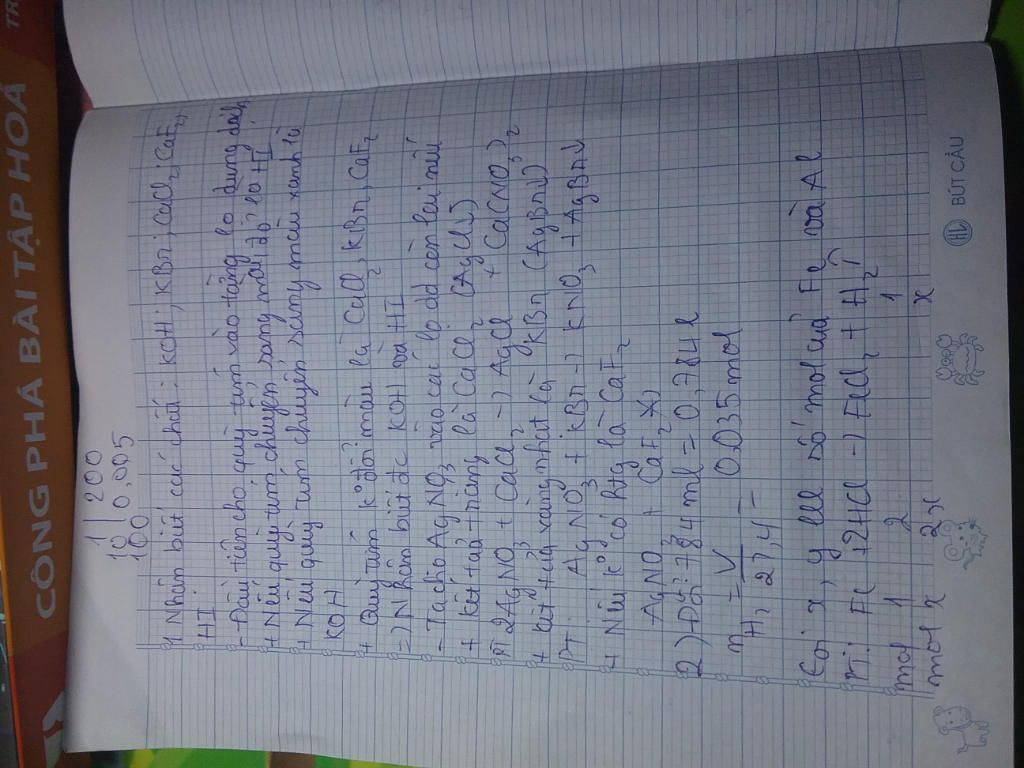 CÔNG PHÁ BÀI TẬP HOÁ
TR
1 | 200
10 | 0,005
100
1, Nhận biết các chất: KOH; KBr; CaCl2; CaF2;
HI
- Đầu tiên cho quỳ tím vào từng lọ dung dịch
+ Nếu quỳ tím chuyển sang màu đỏ là HI
+ Nếu quỳ tím chuyển sang màu xanh là
KOH
+ Quỳ tím k° đổi màu là CaCl2, KBr, CaF2
=) Nhận biết đc KOH và HI
- Ta cho AgNO3 vào các lọ dd còn lại nếu
+ Kết tủa trắng là CaCl2 (AgCl)
PT 2AgNO3 + CaCl2 -) AgCl + Ca(NO3)2
+ Kết tủa vàng nhạt là KBr (AgBr↓)
PT: AgNO3 + KBr -) KNO3 + AgBr↓
+ Nếu k° có htg là CaF2
AgNO3 + CaF2 X)
2) Đổi: 784 ml = 0,784 l
nH2 = V / 22,4 = 0,035 mol
Gọi x, y là số mol của Fe và Al
PT: Fe + 2HCl -) FeCl2 + H2↑
mol 1 2 1
mol x 2x x
HL BÚT CẦU